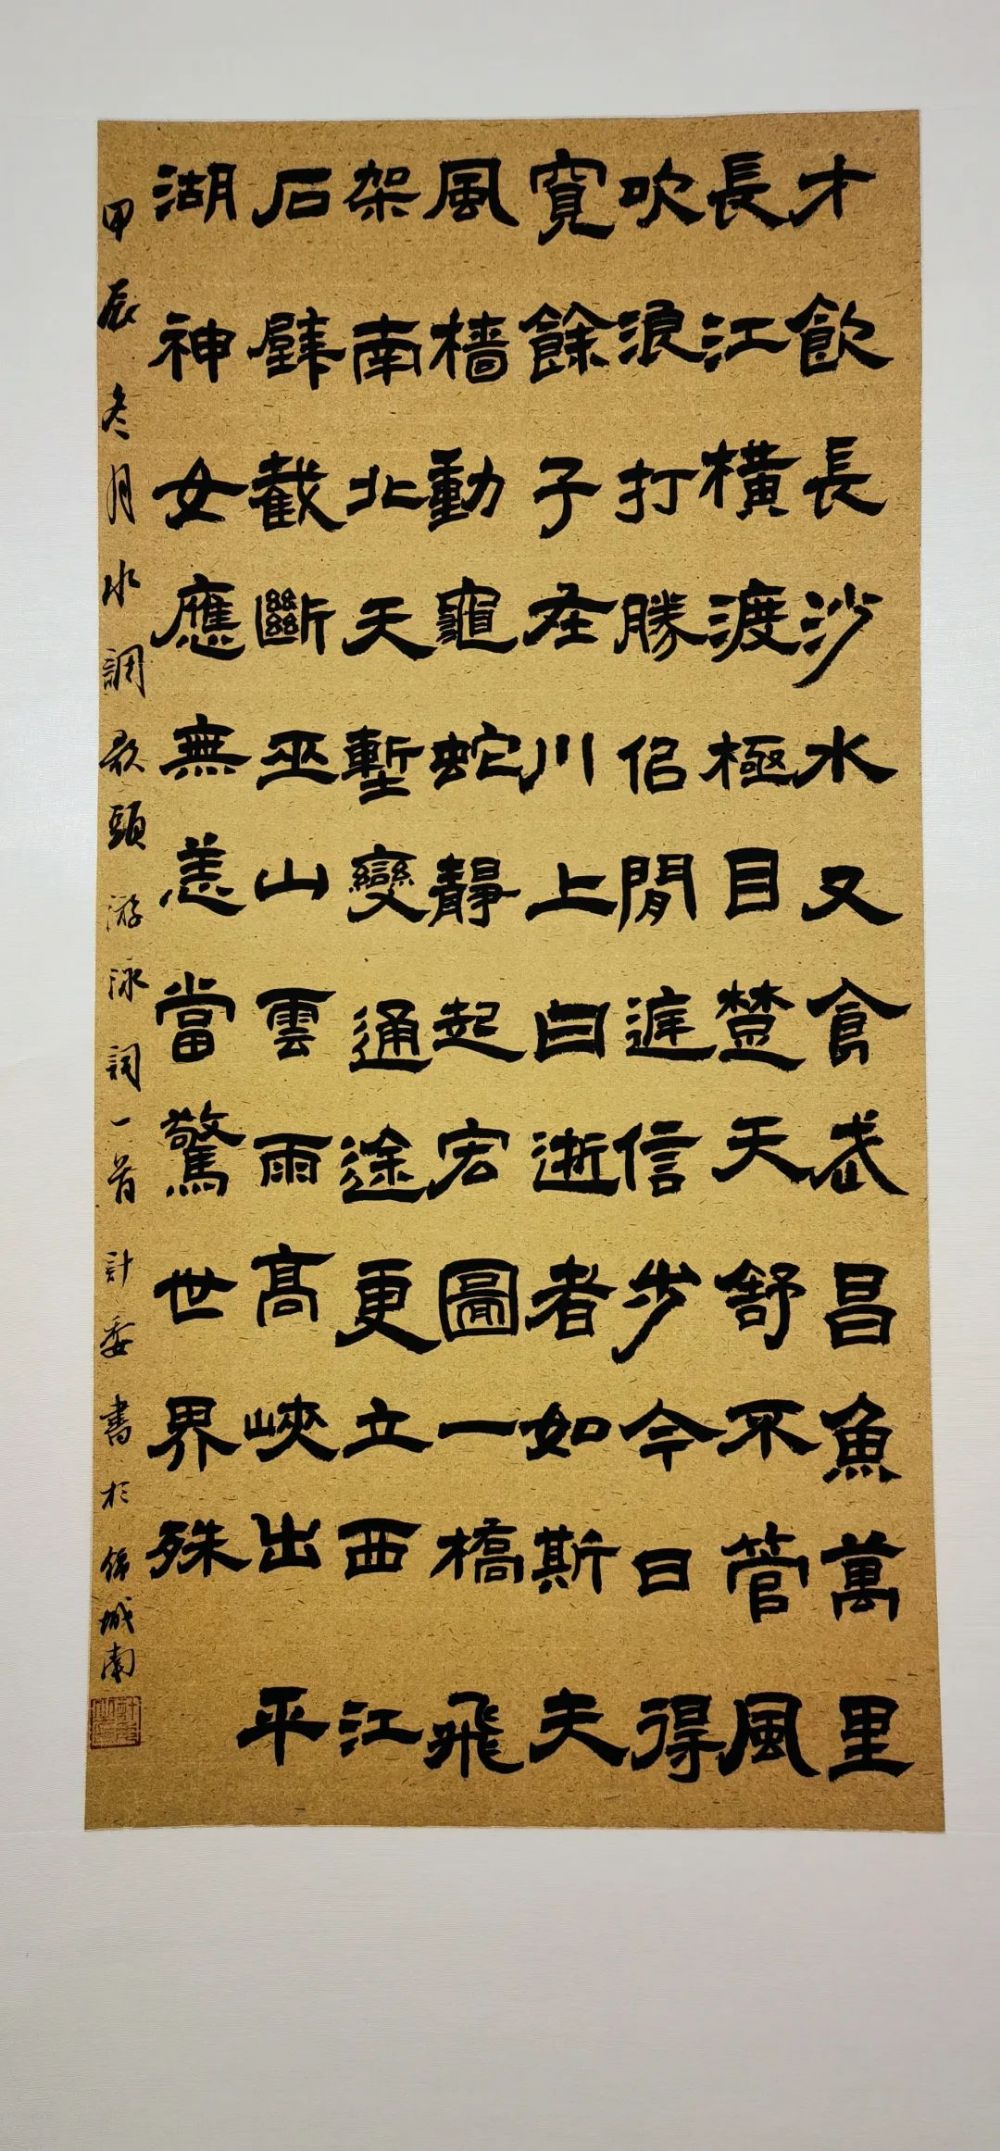 才飲長沙水又食武昌魚萬里
長江橫渡極目楚天舒不管風
吹浪打勝佀閒庭信步今日得
寬餘子在川上曰逝者如斯夫
風檣動龜蛇靜起宏圖一橋飛
架南北天塹變通途更立西江
石壁截斷巫山雲雨高峽出平
湖神女應無恙當驚世界殊
甲辰冬月水調歌頭游泳詞一首計委書於城南